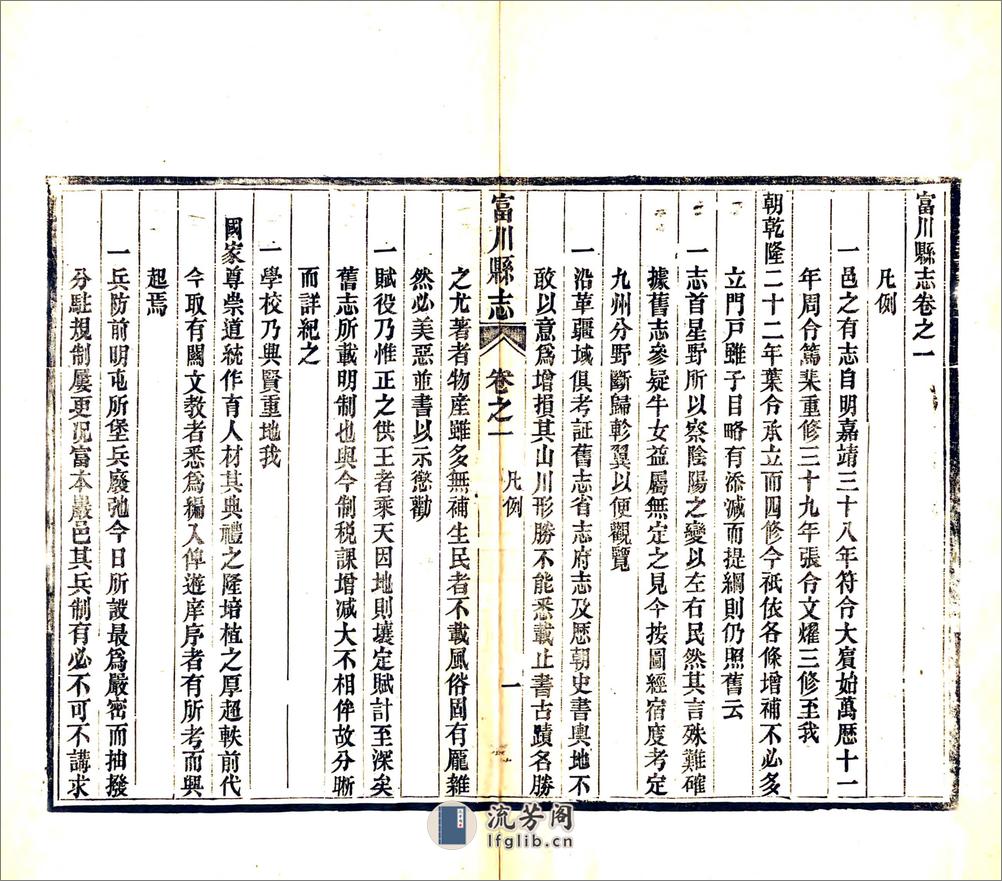 富川縣志卷之一
凡例
一邑之有志自明嘉靖三十八年符令大賓始萬歷十一
年周令篤棐重修三十九年張令文燿三修至我
朝乾隆二十二年葉令承立而四修今祗依各條增補不必多
立門戸雖子目略有添減而提綱則仍照舊云
一志首星野所以察陰陽之變以左右民然其言殊難確
據舊志參疑牛女益屬無定之見今按圖經宿度考定
九州分野斷歸軫翼以便觀覽
一沿革疆域俱考証舊志省志府志及歷朝史書輿地不
敢以意爲增損其山川形勝不能悉載止書古蹟名勝
富川縣志 卷之一 凡例 一
之尤著者物産雖多無補生民者不載風俗固有厖雜
然必美惡並書以示懲勸
一賦役乃惟正之供王者乘天因地則壤定賦計至深矣
舊志所載明制也與今制税課增減大不相侔故分晣
而詳紀之
一學校乃興賢重地我
國家尊崇道統作育人材其典禮之隆培植之厚超軼前代
今取有關文教者悉爲編入俾遊庠序者有所考而興
起焉
一兵防前明屯所堡兵廢弛今日所設最爲嚴密而抽撥
分駐規制屢更况富本巖邑其兵制有必不可不講求
流芳阁
lfglib.cn